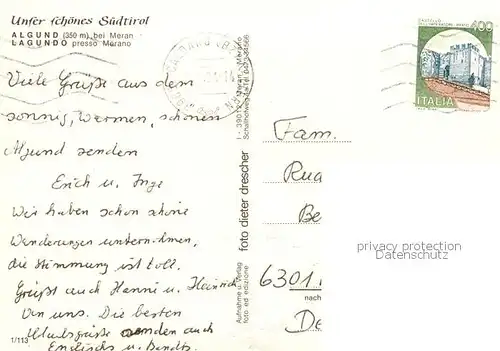 Unser schönes Südtirol
ALGUND (350 m) bei Meran
LAGUNDO presso Merano
Viele Grüße aus dem
sonnig, warmen, schönen
Algund senden
Erich u. Inge
Wir haben schon schöne
Wanderungen unternohmen,
die Stimmung ist toll.
Grüßt auch Hanni u. Heinrich
von uns. Die besten
Urlaubsgrüße senden auch
Englischs u. Bendts
1/113
foto dieter drescher
Aufnahme u. Verlag
foto ed edizione
I - 39012 Meran / Merano
CASTELLO
400
ITALIA
Fam.
Rua
Be
6301
nach
De
privacy protection
Datenschutz